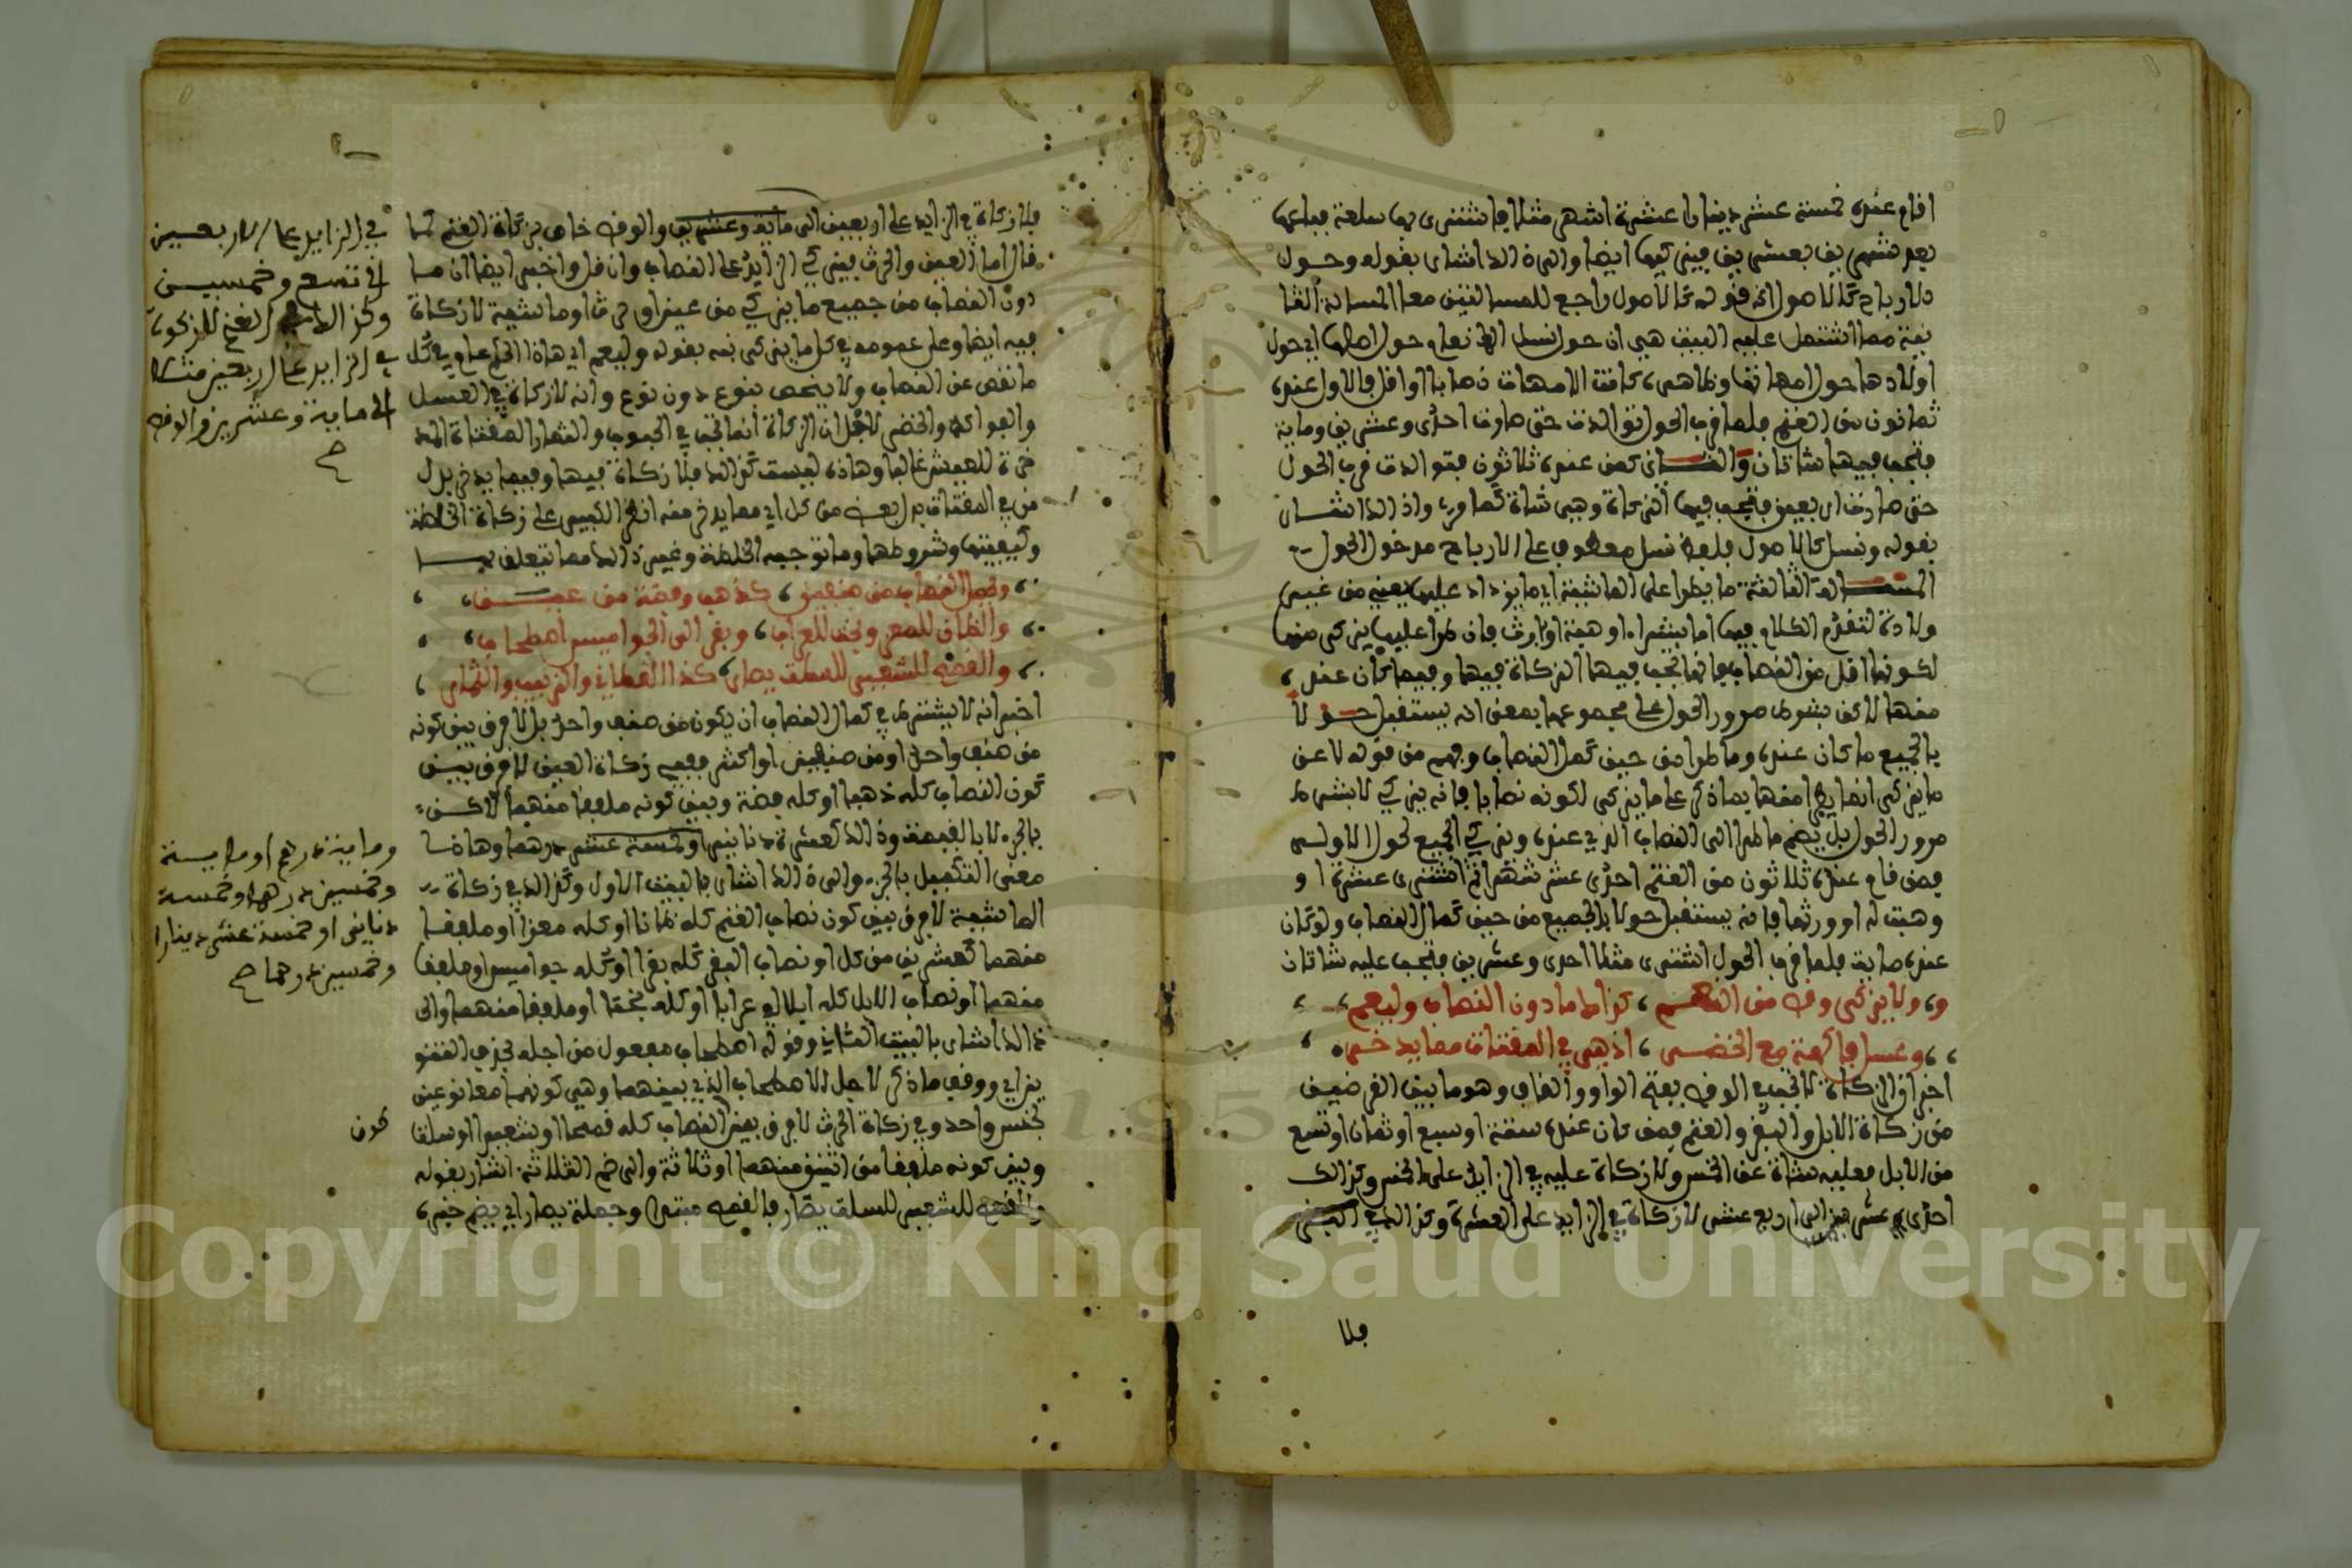 اقام عنده خمسة عشر دينارا عشرة اشهر مثلا فاشترى بها سلعة فباعها
بعد شهرين بعشرين فيزكيها ايضا والى ذالك اشار بقوله وحول
الارباح كالاصول ثم قوله كالاصول راجع للمسالتين معا المسالة الثا
نية مما اشتمل عليه البيت هي ان حول نسل الانعام حول اصلها اي حول
اولادها حول امهاتها وظاهره كانت الامهات نصابا او اقل فالاول عنده
ثمانون من الغنم فلما قرب الحول توالدت حتى صارت احدى وعشرين وماية
فتجب فيها شاتان والثاني كمن عنده ثلاثون فتوالدت قرب الحول
حتى صارت اربعين فتجب فيها الزكاة وهي شاة كما مر والى ذالك اشار
بقوله ونسل كالاصول فلفظ نسل معطوف على الارباح مدخول الحول
المسالة الثالثة ما يطرا على الماشية اي ما يزداد عليها يعني من غير
ولادة لتقدم الكلام فيها اما بشراء او هبة او ارث فان طرا عليها يزكى منها
لكونها اقل من النصاب فانها تجب فيها الزكاة فيها وفيما كان عنده
منها لاكن بشرط مرور الحول على مجموعها بمعنى انه يستقبل حولا
بالجميع ما كان عنده وما طرا من حين كمل النصاب وفهم من قوله لا عن
ما يزكى انه ان طرا منها ما ذكر على ما يزكى لكونه نصابا فانه يزكي لا بشرط
مرور الحول بل يضم ما طرا الى النصاب الذي عنده ويزكي الجميع لحول الاولى
فمن قام عنده ثلاثون من الغنم احدى عشر شهرا ثم اشترى عشرة او
وهبت له او ورثها فانه يستقبل حولا بالجميع من حين كمال النصاب ولو كان
عنده ماية فلما قرب الحول اشترى مثلا احدى وعشرين فتجب عليه شاتان
ولا يزكى وقص من النعم كذاك ما دون النصاب وليعم
وعسل فاكهة مع الخضر اذ هي في المقتات مما يدخر
اخبر ان الزكاة لا تجب في الوقص بفتح الواو والقاف وهو ما بين الفرضين
من زكاة الابل والبقر والغنم فمن كان عنده ستة او سبع او ثمان او تسع
من الابل فعليه شاة عن الخمس ولا زكاة عليه في الزايد على الخمس وكذالك
احدى عشر الى اربع عشر لا زكاة في الزايد على العشرة وكذالك في البقر
فلا
فلا زكاة في الزايد على اربعين الى ماية وعشرين والوقص خاص بزكاة الغنم كما
قال اما العين والحرث فيزكي الزايد على النصاب وان قل واخبر ايضا ان ما
دون النصاب من جميع ما يزكي من عين او حرث او ماشية لا زكاة
فيه ايضا وعلى عمومه في كل ما يزكى نبه بقوله وليعم اي هاذا الحكم عام في كل
ما نقص عن النصاب ولا يختص بنوع دون نوع وانه لا زكاة في العسل
والفواكه والخضر لاجل ان الزكاة انما تجب في الحبوب والثمار المقتاة المد
خرة للعيش غالبا وهاذه ليست كذالك فلا زكاة فيها وفيما يدخر بدل
من في المقتات بدل بعض من كل اي مما يدخر منه انظر الكبير على زكاة الخلطة
وكيفيتها وشروطها وما توجبه الخلطة وغير ذالك مما يتعلق بها
ويحصل النصاب من صنفين كذهب وفضة من عين
والضان للمعز وبخت للعراب وبقر الى الجواميس اصطحاب
والقمح للشعير للسلت يصار كذا القطاني والزبيب والثمار
اخبر انه لا يشترط في كمال النصاب ان يكون من صنف واحد بل لا فرق بين كونه
من صنف واحد او من صنفين او اكثر ففي زكاة العين لا فرق بين
كون النصاب كله ذهبا او كله فضة وبين كونه ملفقا منهما لاكن
بالجزء لا بالقيمة وذالك كعشرة دنانير او خمسة عشر درهما وهاذا
معنى التكميل بالجزء والى ذالك اشار بالبيت الاول وكذالك في زكاة
الماشية لا فرق بين كون نصاب الغنم كله ضانا او كله معزا او ملفقا
منهما كعشرين من كل او نصاب البقر كله بقرا او كله جواميس او ملفقا
منهما او نصاب الابل كله ابلا او عرابا او كله بختا او ملفقا منهما والى
ذالك اشار بالبيت الثاني وقوله اصطحاب مفعول من اجله بحذف التنو
ين اي ووقع ما ذكر لاجل الاصطحاب الذي بينهما وهي كونهما معا نوعين
لجنس واحد وفي زكاة الحرث لا فرق بين النصاب كله قمحا او شعيرا او سلتا
وبين كونه ملفقا من اثنين منهما او ثلاثة والى ضم الثلاثة اشار بقوله
والقمح للشعير للسلت يصار فالقمح مبتدا وجملة يصار اي يضم خبره
في الزايد على الاربعين
الى تسع وخمسين
وكذالك الغنم لا زكوة
في الزايد على الاربعين مثلا
الى ماية وعشرين والوقص
صح
وماية درهم او ماية
وخمسين درهما وخمسة
دنانير او خمسة عشر دينارا
وخمسين درهما صح
كون
Copyright © King Saud University
195